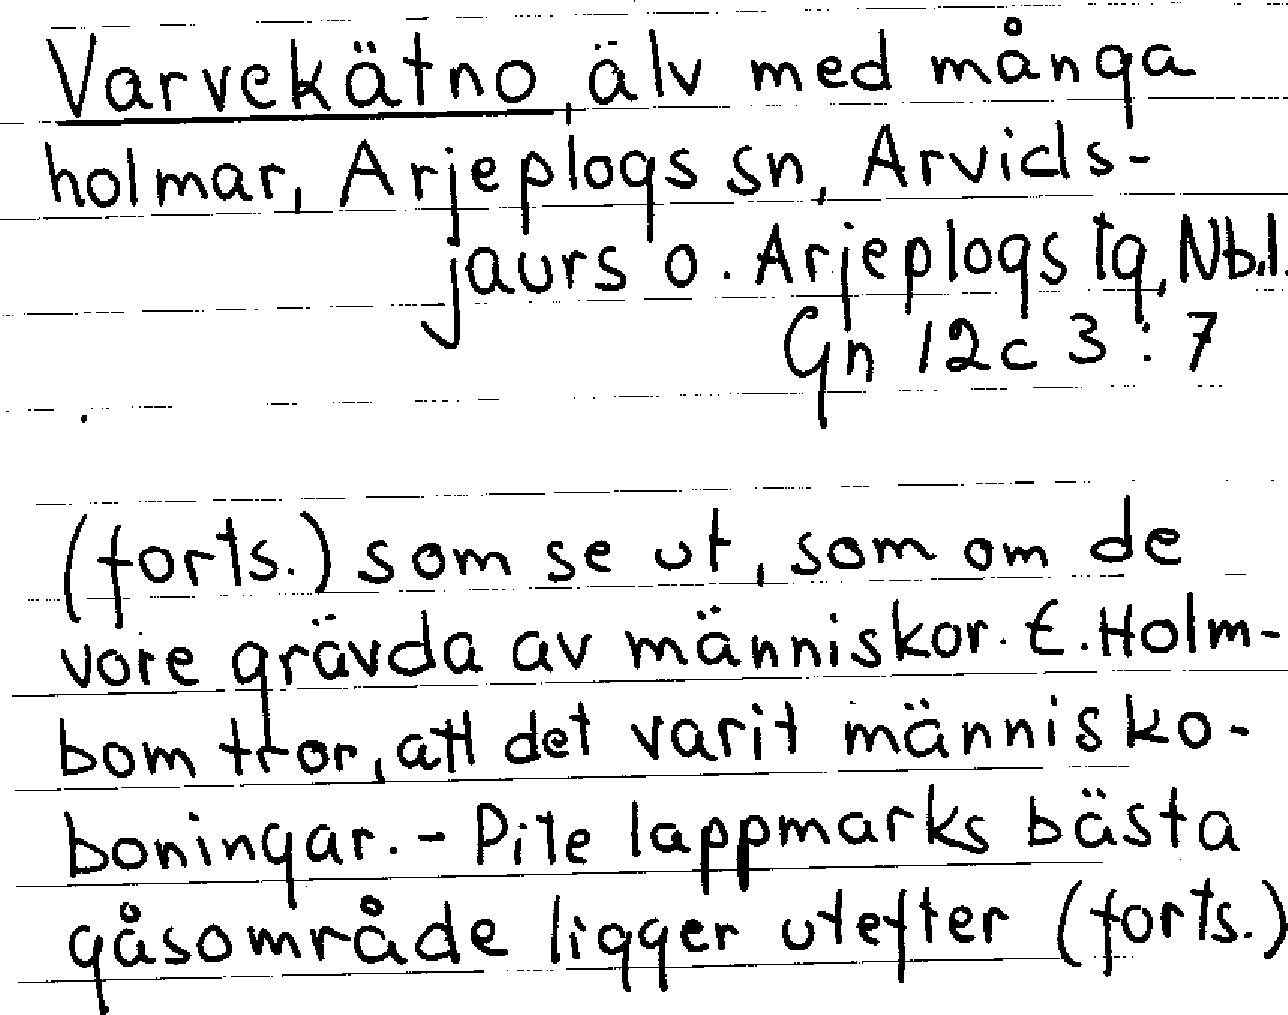 Varvekätno, älv med många
holmar, Arjeplogs sn, Arvids-
jaurs o. Arjeplogs tg, Nb.l.
Gn 12c 3:7
(forts.) som se ut, som om de
vore grävda av människor. E. Holm-
bom tror, att det varit människo-
boningar. - Pite lappmarks bästa
gåsområde ligger utefter (forts.)